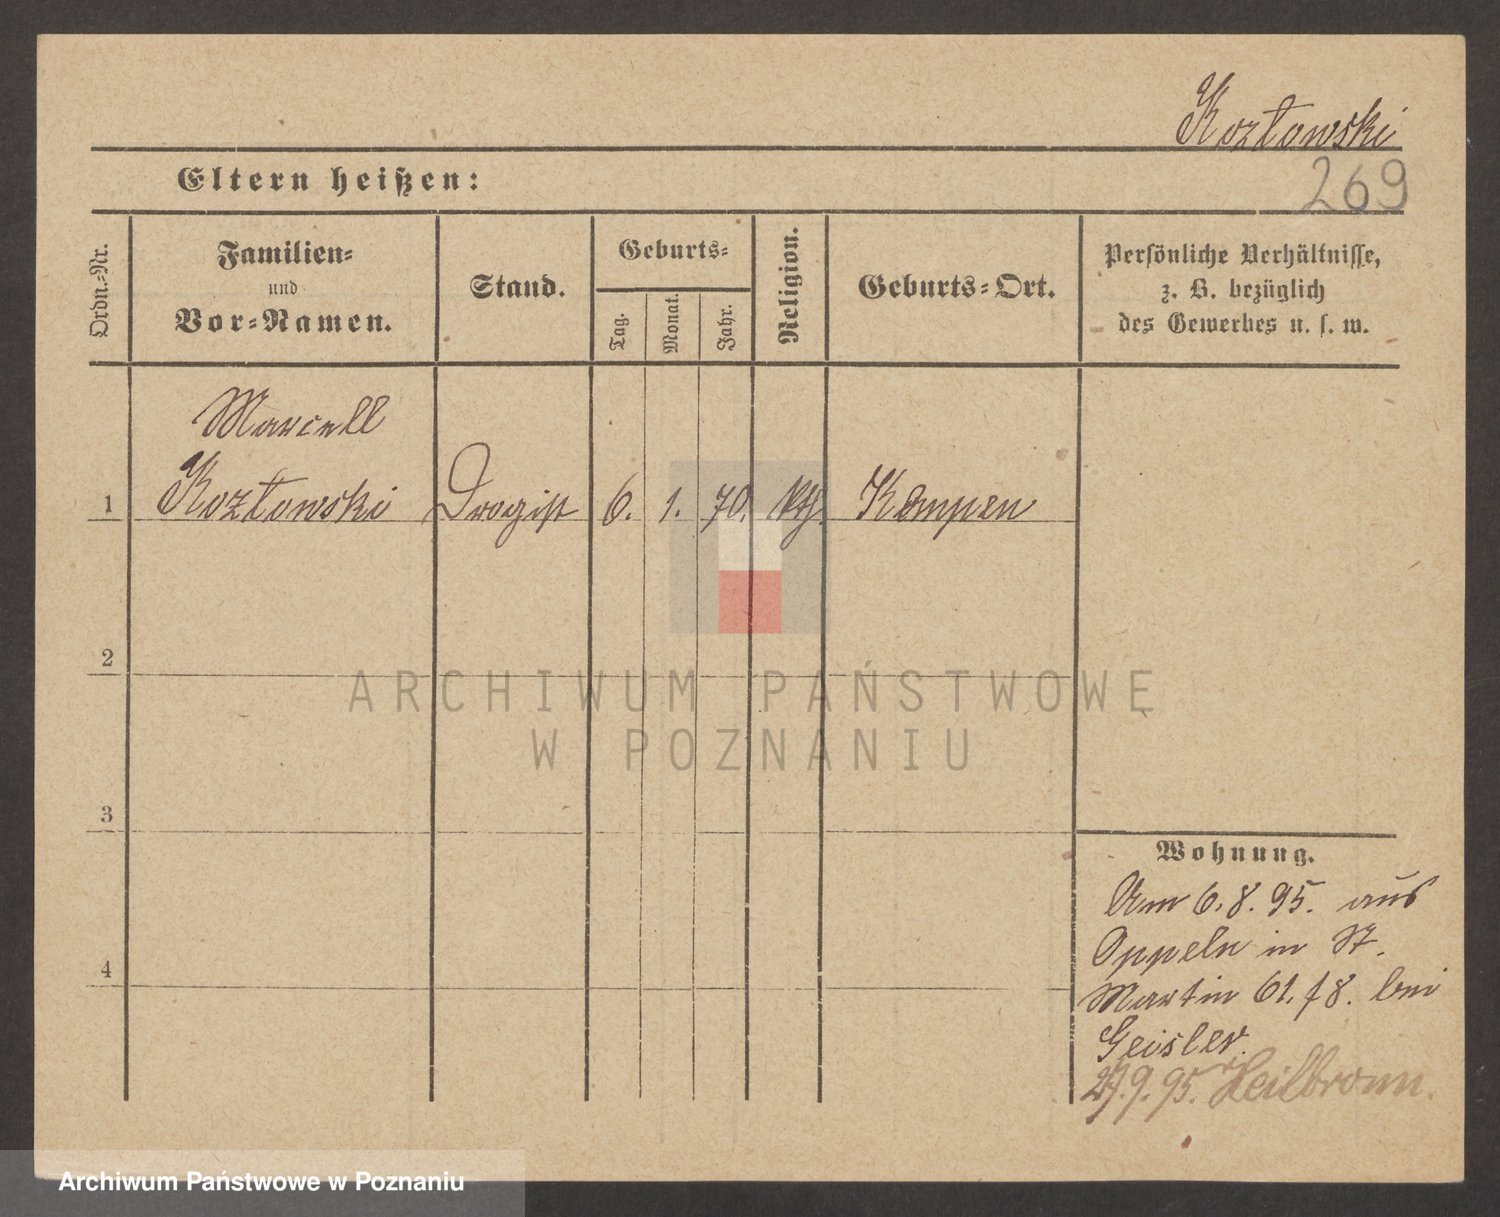 Kozłowski
269
Eltern heißen:
Ordn.-Nr.
Familien-
und
Vor-Namen.
Stand.
Geburts-
Tag.
Monat.
Jahr.
Religion.
Geburts-Ort.
Persönliche Verhältnisse,
z. B. bezüglich
des Gewerbes u. s. w.
Marcell
1 Kozłowski Drogist 6. 1. 70. kth. Kempen
2
3
4
Wohnung.
Am 6.8.95. aus
Oppeln in St.
Martin 61. f 8. bei
Geisler.
27.9.95. Heilbronn.
ARCHIWUM PAŃSTWOWE
W POZNANIU
Archiwum Państwowe w Poznaniu